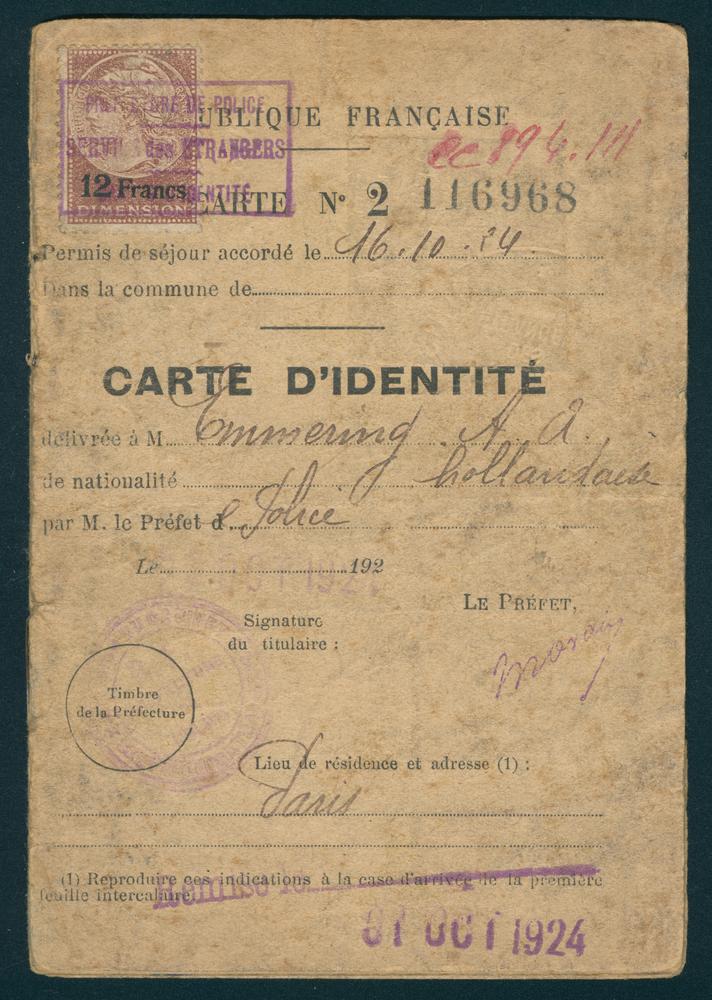 PRÉFECTURE DE POLICE
SERVICE des ETRANGERS
IDENTITÉ
12 Francs
DIMENSION
UBLIQUE FRANÇAISE
CARTE N° 2 116968
Permis de séjour accordé le 16.10.24
Dans la commune de
CARTE D'IDENTITÉ
délivrée à M Emmering A. A.
de nationalité hollandaise
par M. le Préfet de Police
Le 192
LE PRÉFET,
Signature
du titulaire :
Morain
Timbre
de la Préfecture
Lieu de résidence et adresse (1) :
Paris
(1) Reproduire ces indications à la case d'arrivée de la première
feuille intercalaire.
Remise le
31 OCT 1924